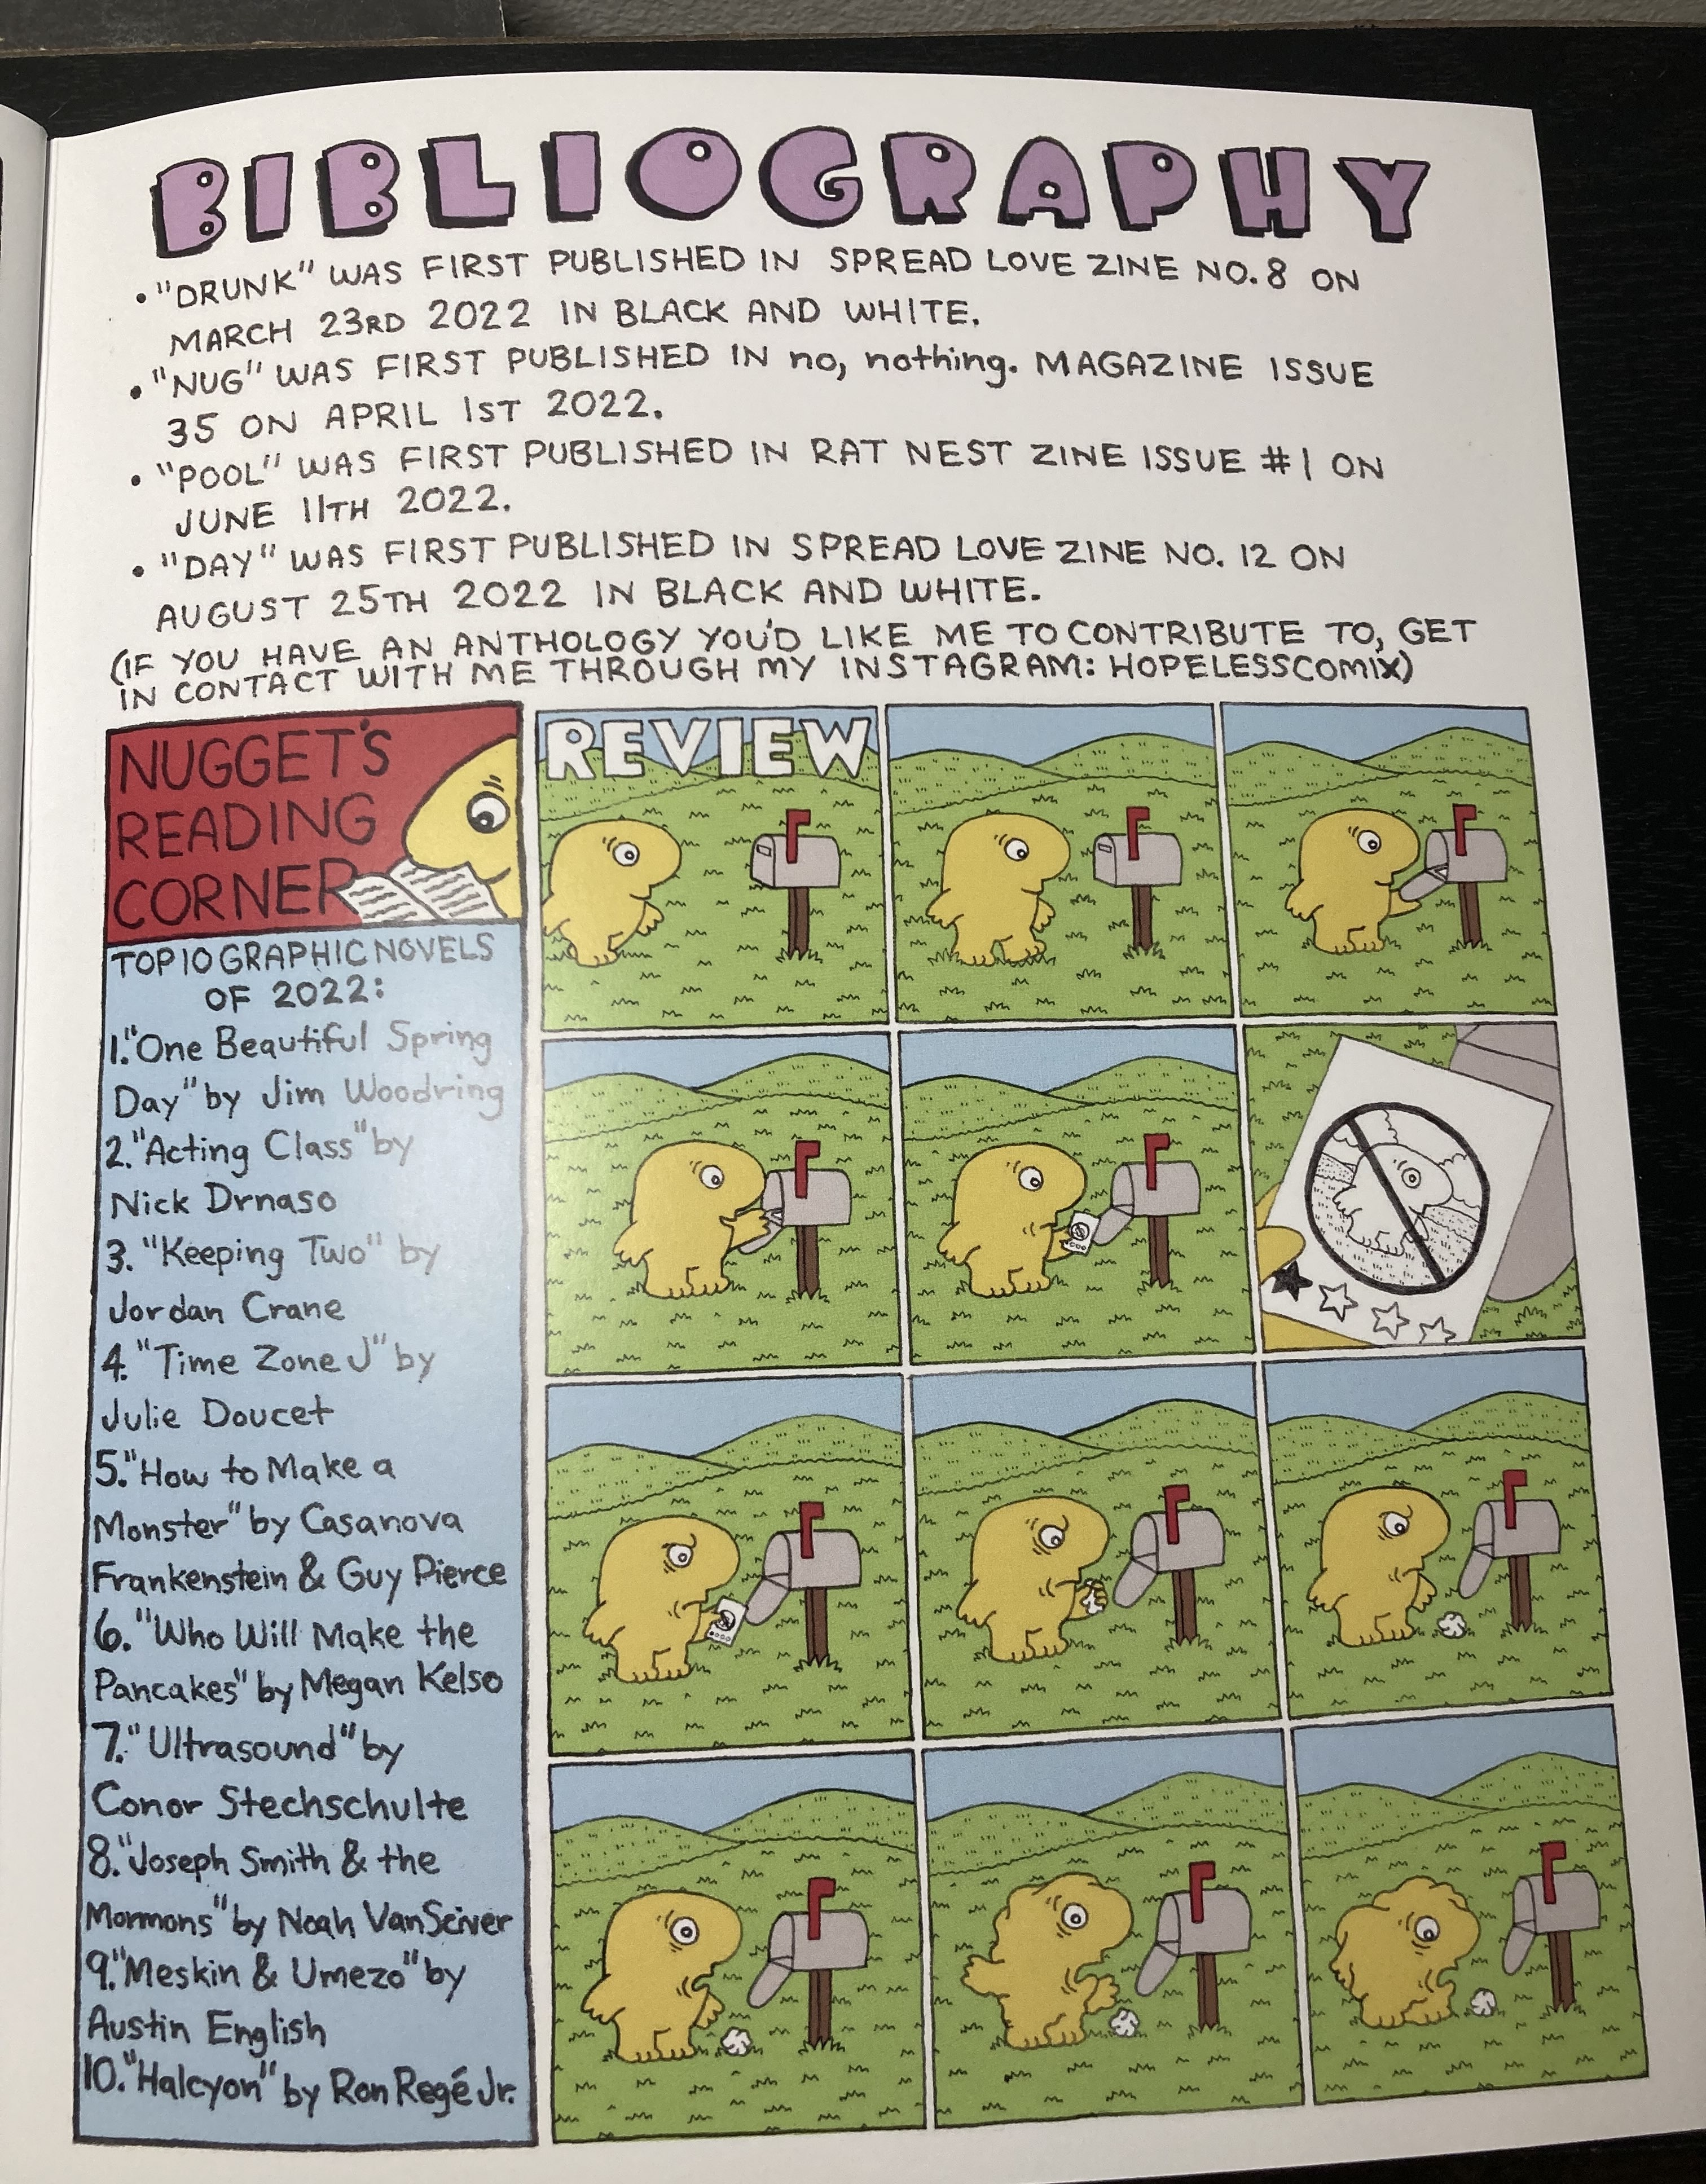 BIBLIOGRAPHY
• "DRUNK" WAS FIRST PUBLISHED IN SPREAD LOVE ZINE NO. 8 ON
MARCH 23RD 2022 IN BLACK AND WHITE.
• "NUG" WAS FIRST PUBLISHED IN no, nothing. MAGAZINE ISSUE
35 ON APRIL 1ST 2022.
• "POOL" WAS FIRST PUBLISHED IN RAT NEST ZINE ISSUE #1 ON
JUNE 11TH 2022.
• "DAY" WAS FIRST PUBLISHED IN SPREAD LOVE ZINE NO. 12 ON
AUGUST 25TH 2022 IN BLACK AND WHITE.
(IF YOU HAVE AN ANTHOLOGY YOU'D LIKE ME TO CONTRIBUTE TO, GET
IN CONTACT WITH ME THROUGH MY INSTAGRAM: HOPELESSCOMIX)
NUGGET'S
READING
CORNER
TOP 10 GRAPHIC NOVELS
OF 2022:
1. "One Beautiful Spring
Day" by Jim Woodring
2. "Acting Class" by
Nick Drnaso
3. "Keeping Two" by
Jordan Crane
4. "Time Zone J" by
Julie Doucet
5. "How to Make a
Monster" by Casanova
Frankenstein & Guy Pierce
6. "Who Will Make the
Pancakes" by Megan Kelso
7. "Ultrasound" by
Conor Stechschulte
8. "Joseph Smith & the
Mormons" by Noah Van Sciver
9. "Meskin & Umezo" by
Austin English
10. "Halcyon" by Ron Regé Jr.
REVIEW